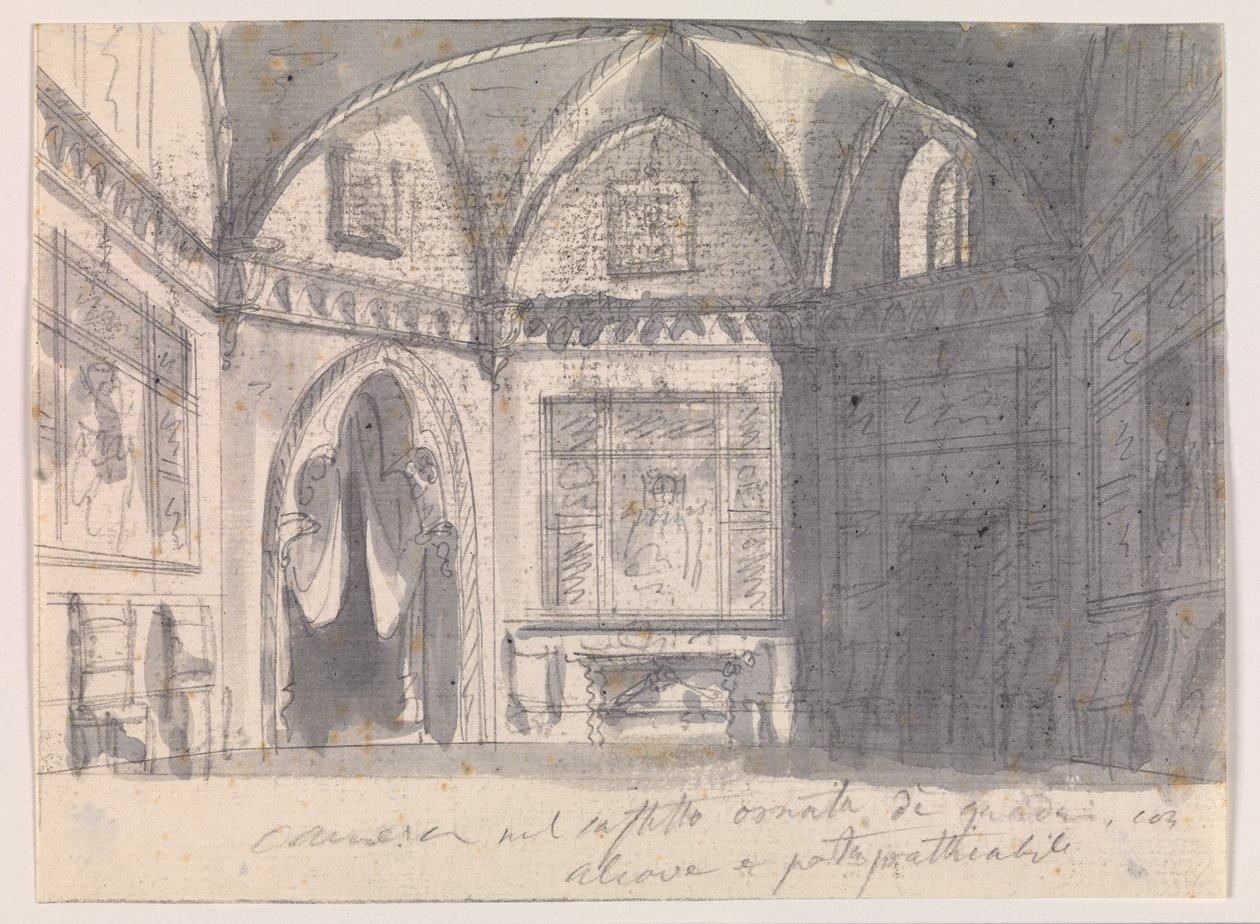 camera nel castello ornata di quadri, con
alcove e porta prathicabile